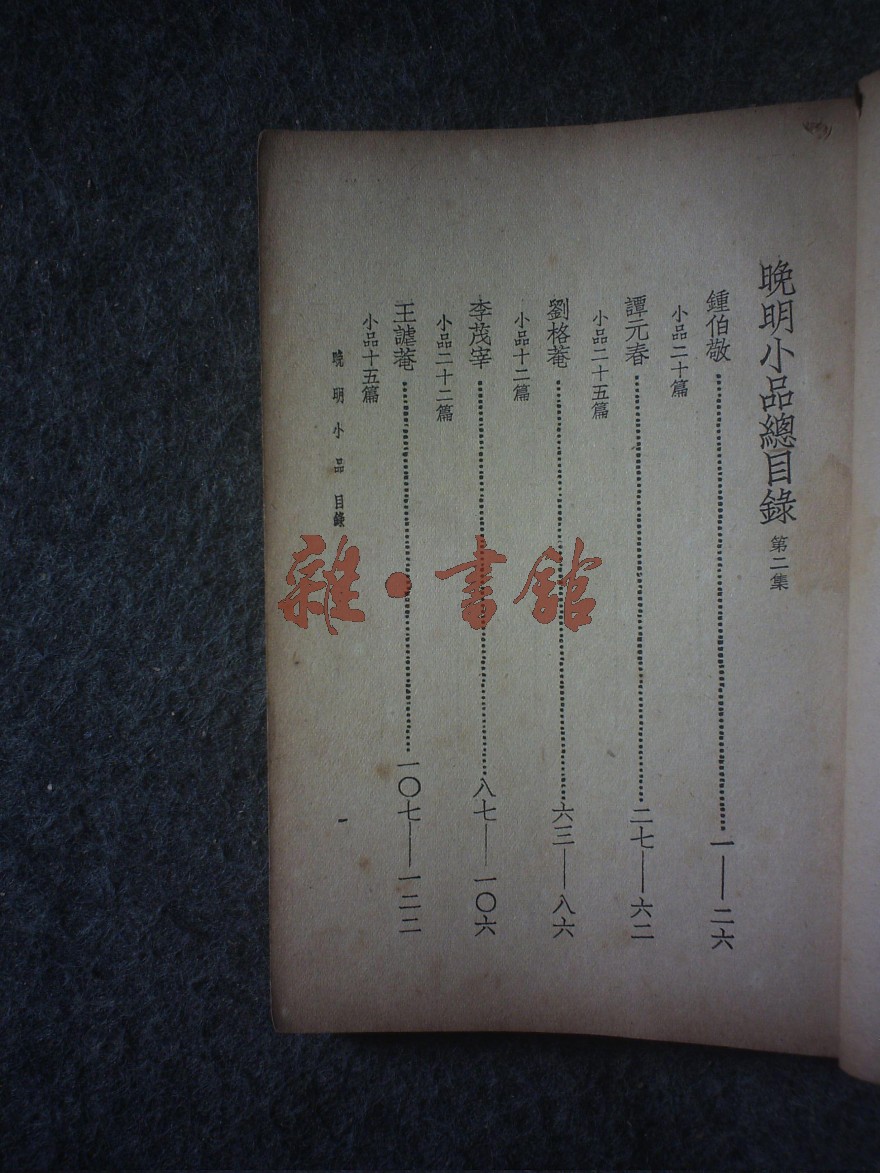 晚明小品總目錄 第二集
鍾伯敬……一——二六
小品二十篇
譚元春……二七——六二
小品二十五篇
劉格菴……六三——八六
小品十二篇
李茂宰……八七——一〇六
小品二十二篇
王謔菴……一〇七——一二二
小品十五篇
晚明小品目錄
一
雜·書館